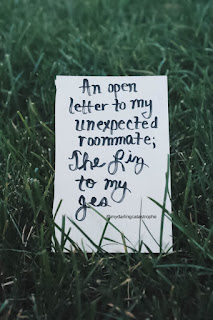 An open
letter to my
unexpected
roommate;
The Liz
to my
Jes
@mydarlingcatastrophe